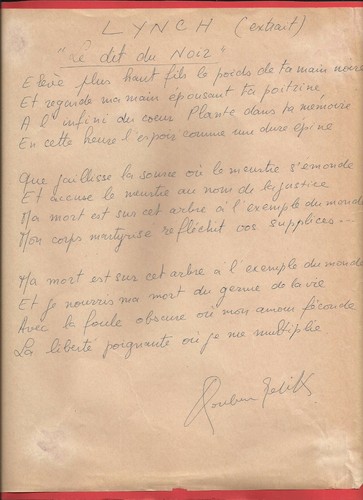 LYNCH (extrait)
"Le dit du Noir"
Elève plus haut fils le poids de ta main noire
Et regarde ma main épousant ta poitrine
A l'infini du coeur Plante dans ta mémoire
En cette heure l'espoir comme une dure épine
Que jaillisse la source où le meurtre s'émonde
Et accuse le meurtre au nom de la justice
Ma mort est sur cet arbre à l'exemple du monde
Mon corps martyrisé réfléchit vos supplices...
Ma mort est sur cet arbre à l'exemple du monde
Et je nourris ma mort du germe de la vie
Avec la foule obscure où mon amour féconde
La liberté poignante où je me multiplie
Rouben Melik